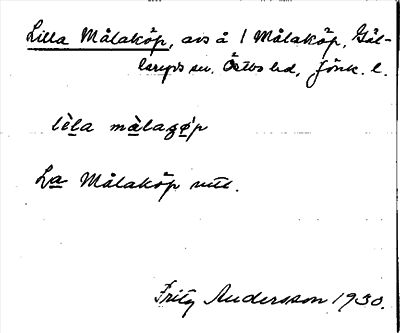 Lilla Målaköp, avs å 1 Målaköp, Gäl-
laryds sn. Östbo hd, Jönk. l.
lèla màlagø̀p
La Målaköp utt.
Fritz Andersson 1930.